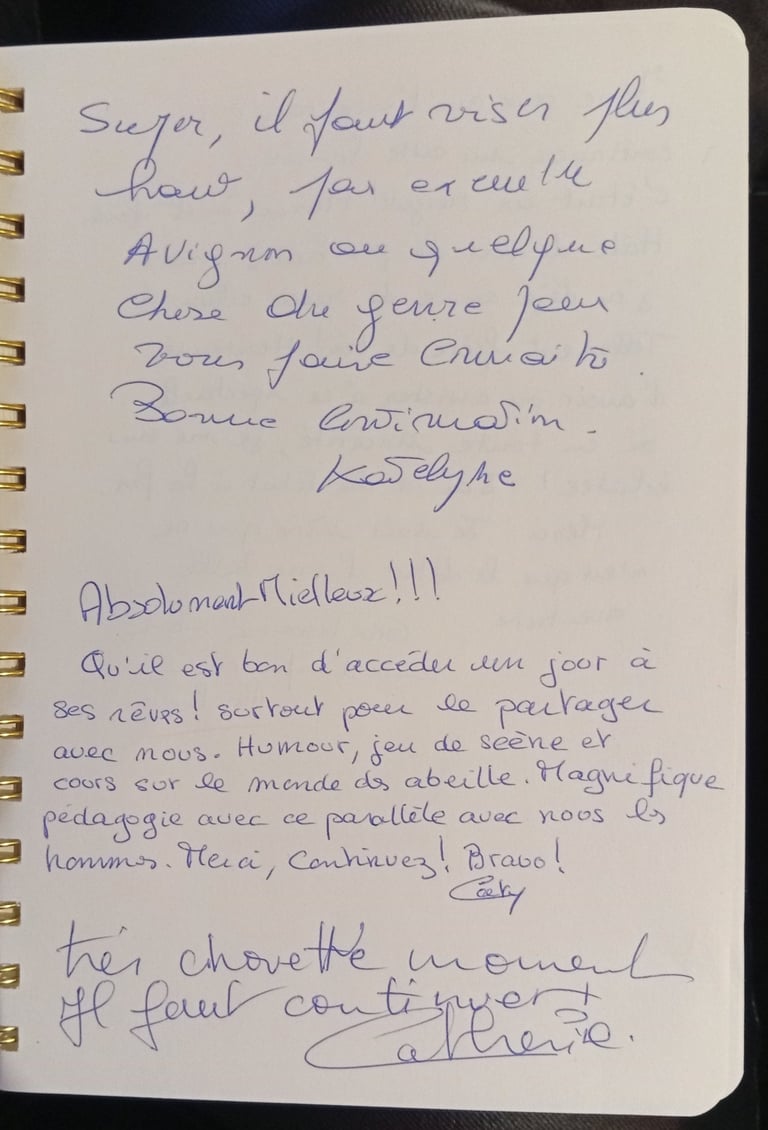 Super, il faut viser plus
haut, par exemple
Avignon ou quelque
chose du genre pour
vous faire connaitre.
Bonne continuation.
Katelyne
Absolument Mielleux!!!
Qu'il est bon d'accéder un jour à
ses rêves! surtout pour le partager
avec nous. Humour, jeu de scène et
cours sur le monde des abeille. Magnifique
pédagogie avec ce parallèle avec nous les
hommes. Merci, Continuez! Bravo!
Caty
très chouette moment
Il faut continuer
Catherine.